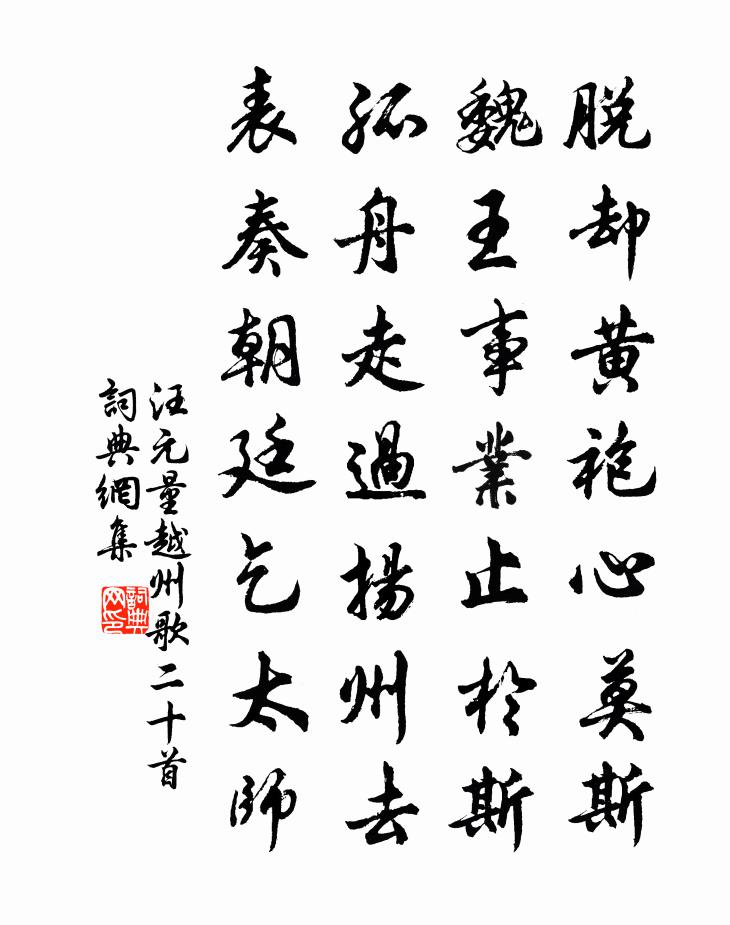 脱却黄袍心莫斯
魏王事業止於斯
孤舟走過揚州去
表奏朝廷乞太師
汪元量越州歌二十首
詞典網集
詞典网印